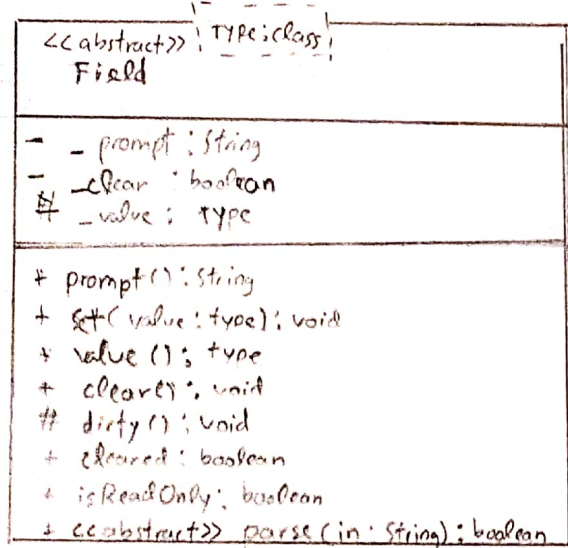 TYPE: class
<<abstract>>
Field
- _prompt : String
- _clear : boolean
# _value : type
+ prompt() : String
+ set( value : type) : void
+ value () : type
+ clear() : void
# dirty () : void
+ cleared : boolean
+ isReadOnly : boolean
+ <<abstract>> parse (in : String) : boolean